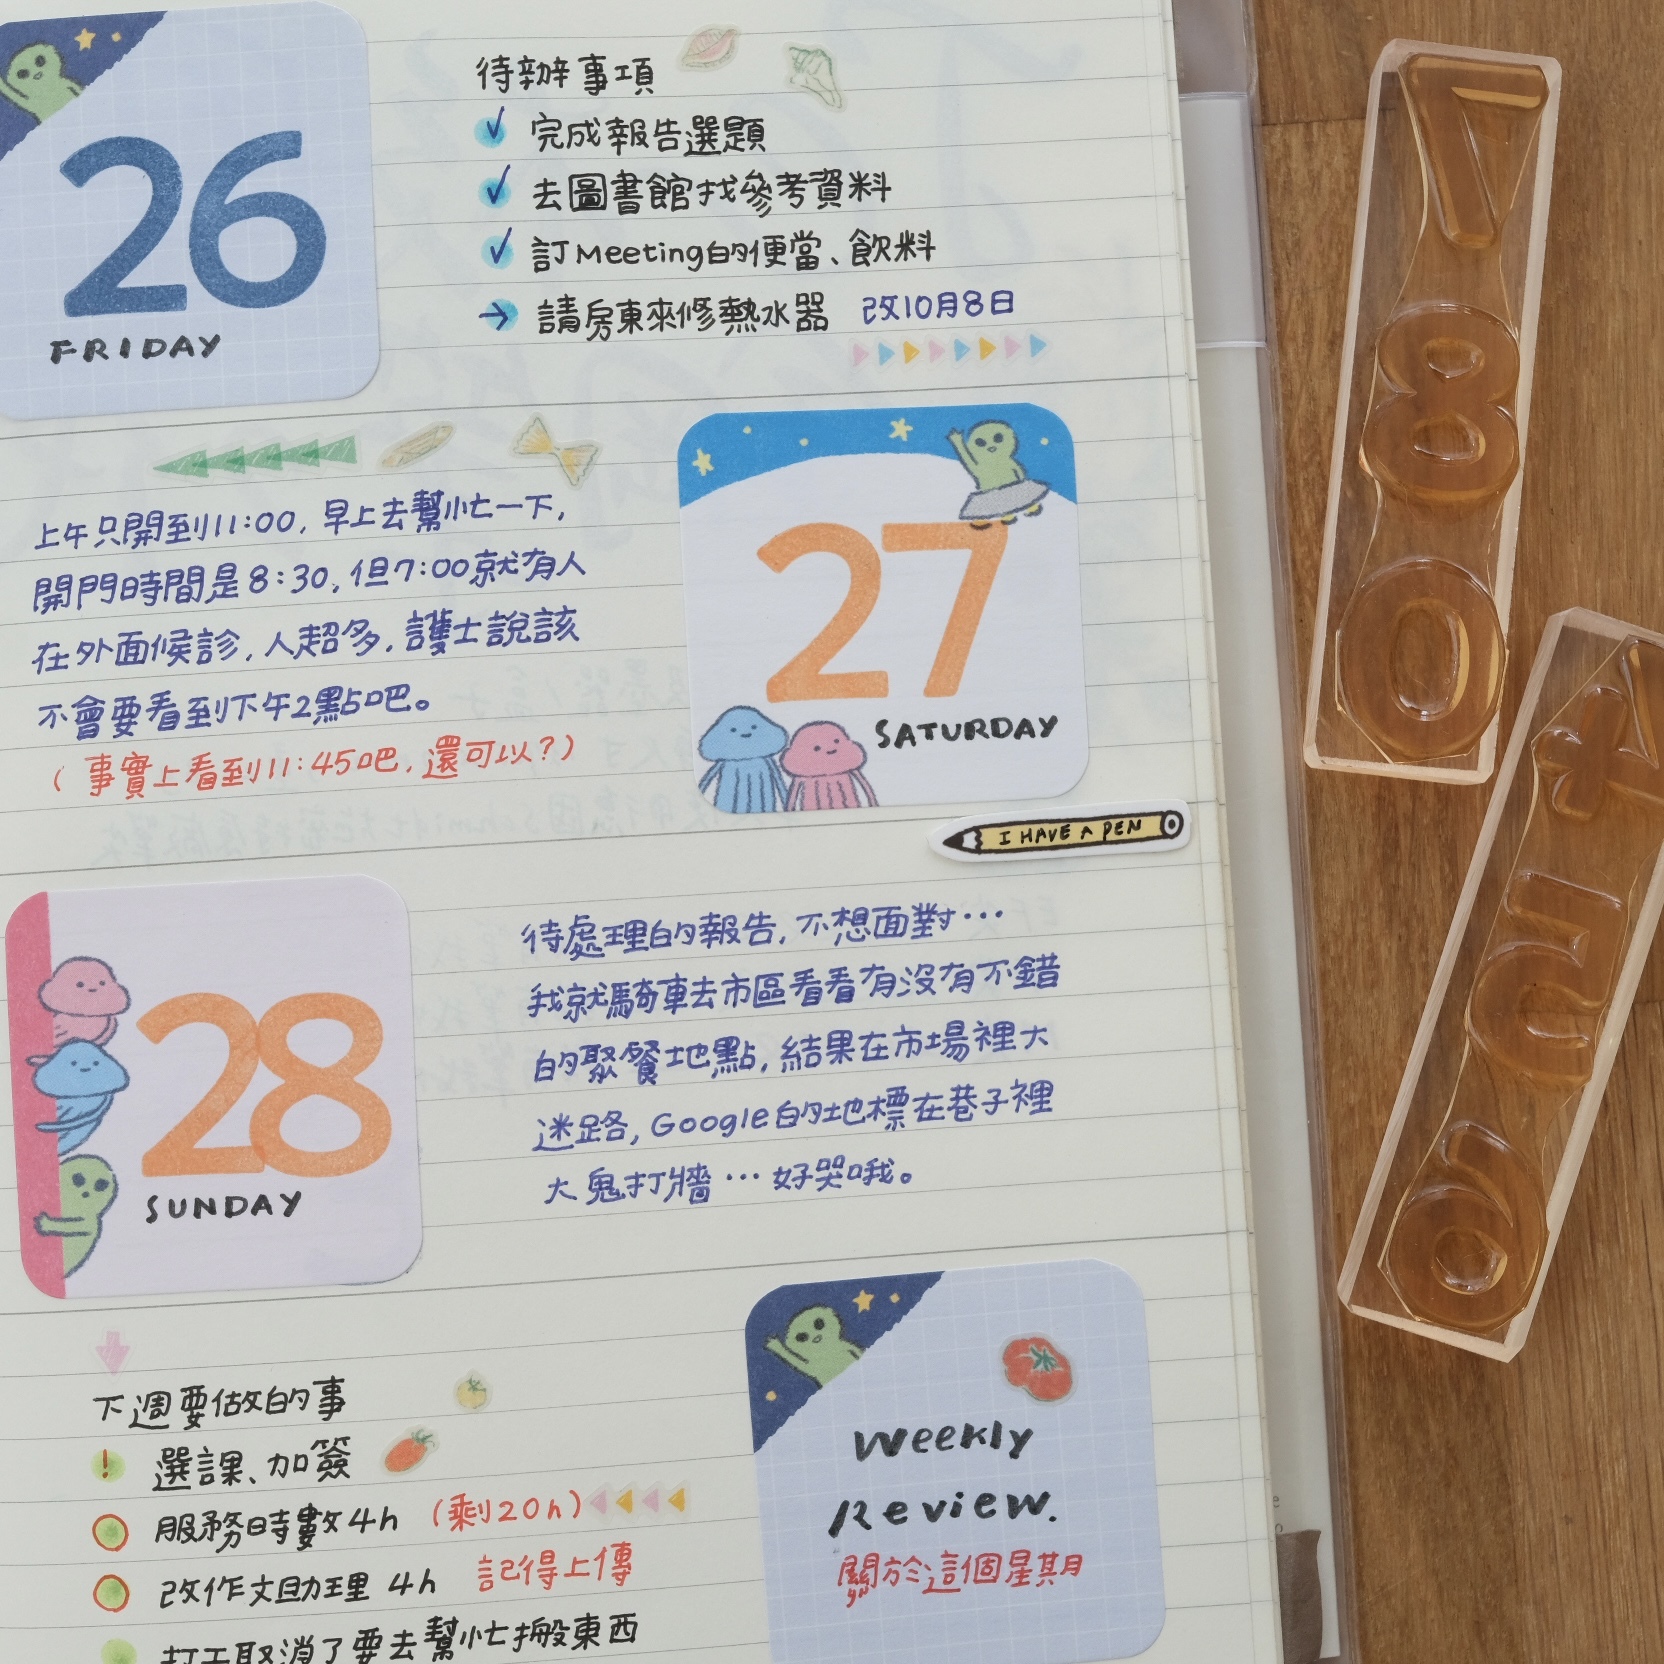 26
FRIDAY
待辦事項
完成報告選題
去圖書館找參考資料
訂Meeting的便當、飲料
請房東來修熱水器 改10月8日
上午只開到11:00, 早上去幫忙一下,
開門時間是8:30, 但7:00就有人
在外面候診, 人超多. 護士說該
不會要看到下午2點吧。
(事實上看到11:45吧, 還可以?)
27
SATURDAY
I HAVE A PEN
28
SUNDAY
待處理的報告, 不想面對…
我就騎車去市區看看有沒有不錯
的聚餐地點, 結果在市場裡大
迷路, Google的地標在巷子裡
大鬼打牆…好哭哦。
下週要做的事
! 選課、加簽
服務時數4h (剩20h)
改作文助理 4h 記得上傳
打工取消了要去幫忙搬東西
Weekly
Review.
關於這個星期
7
8
0
4
5
6